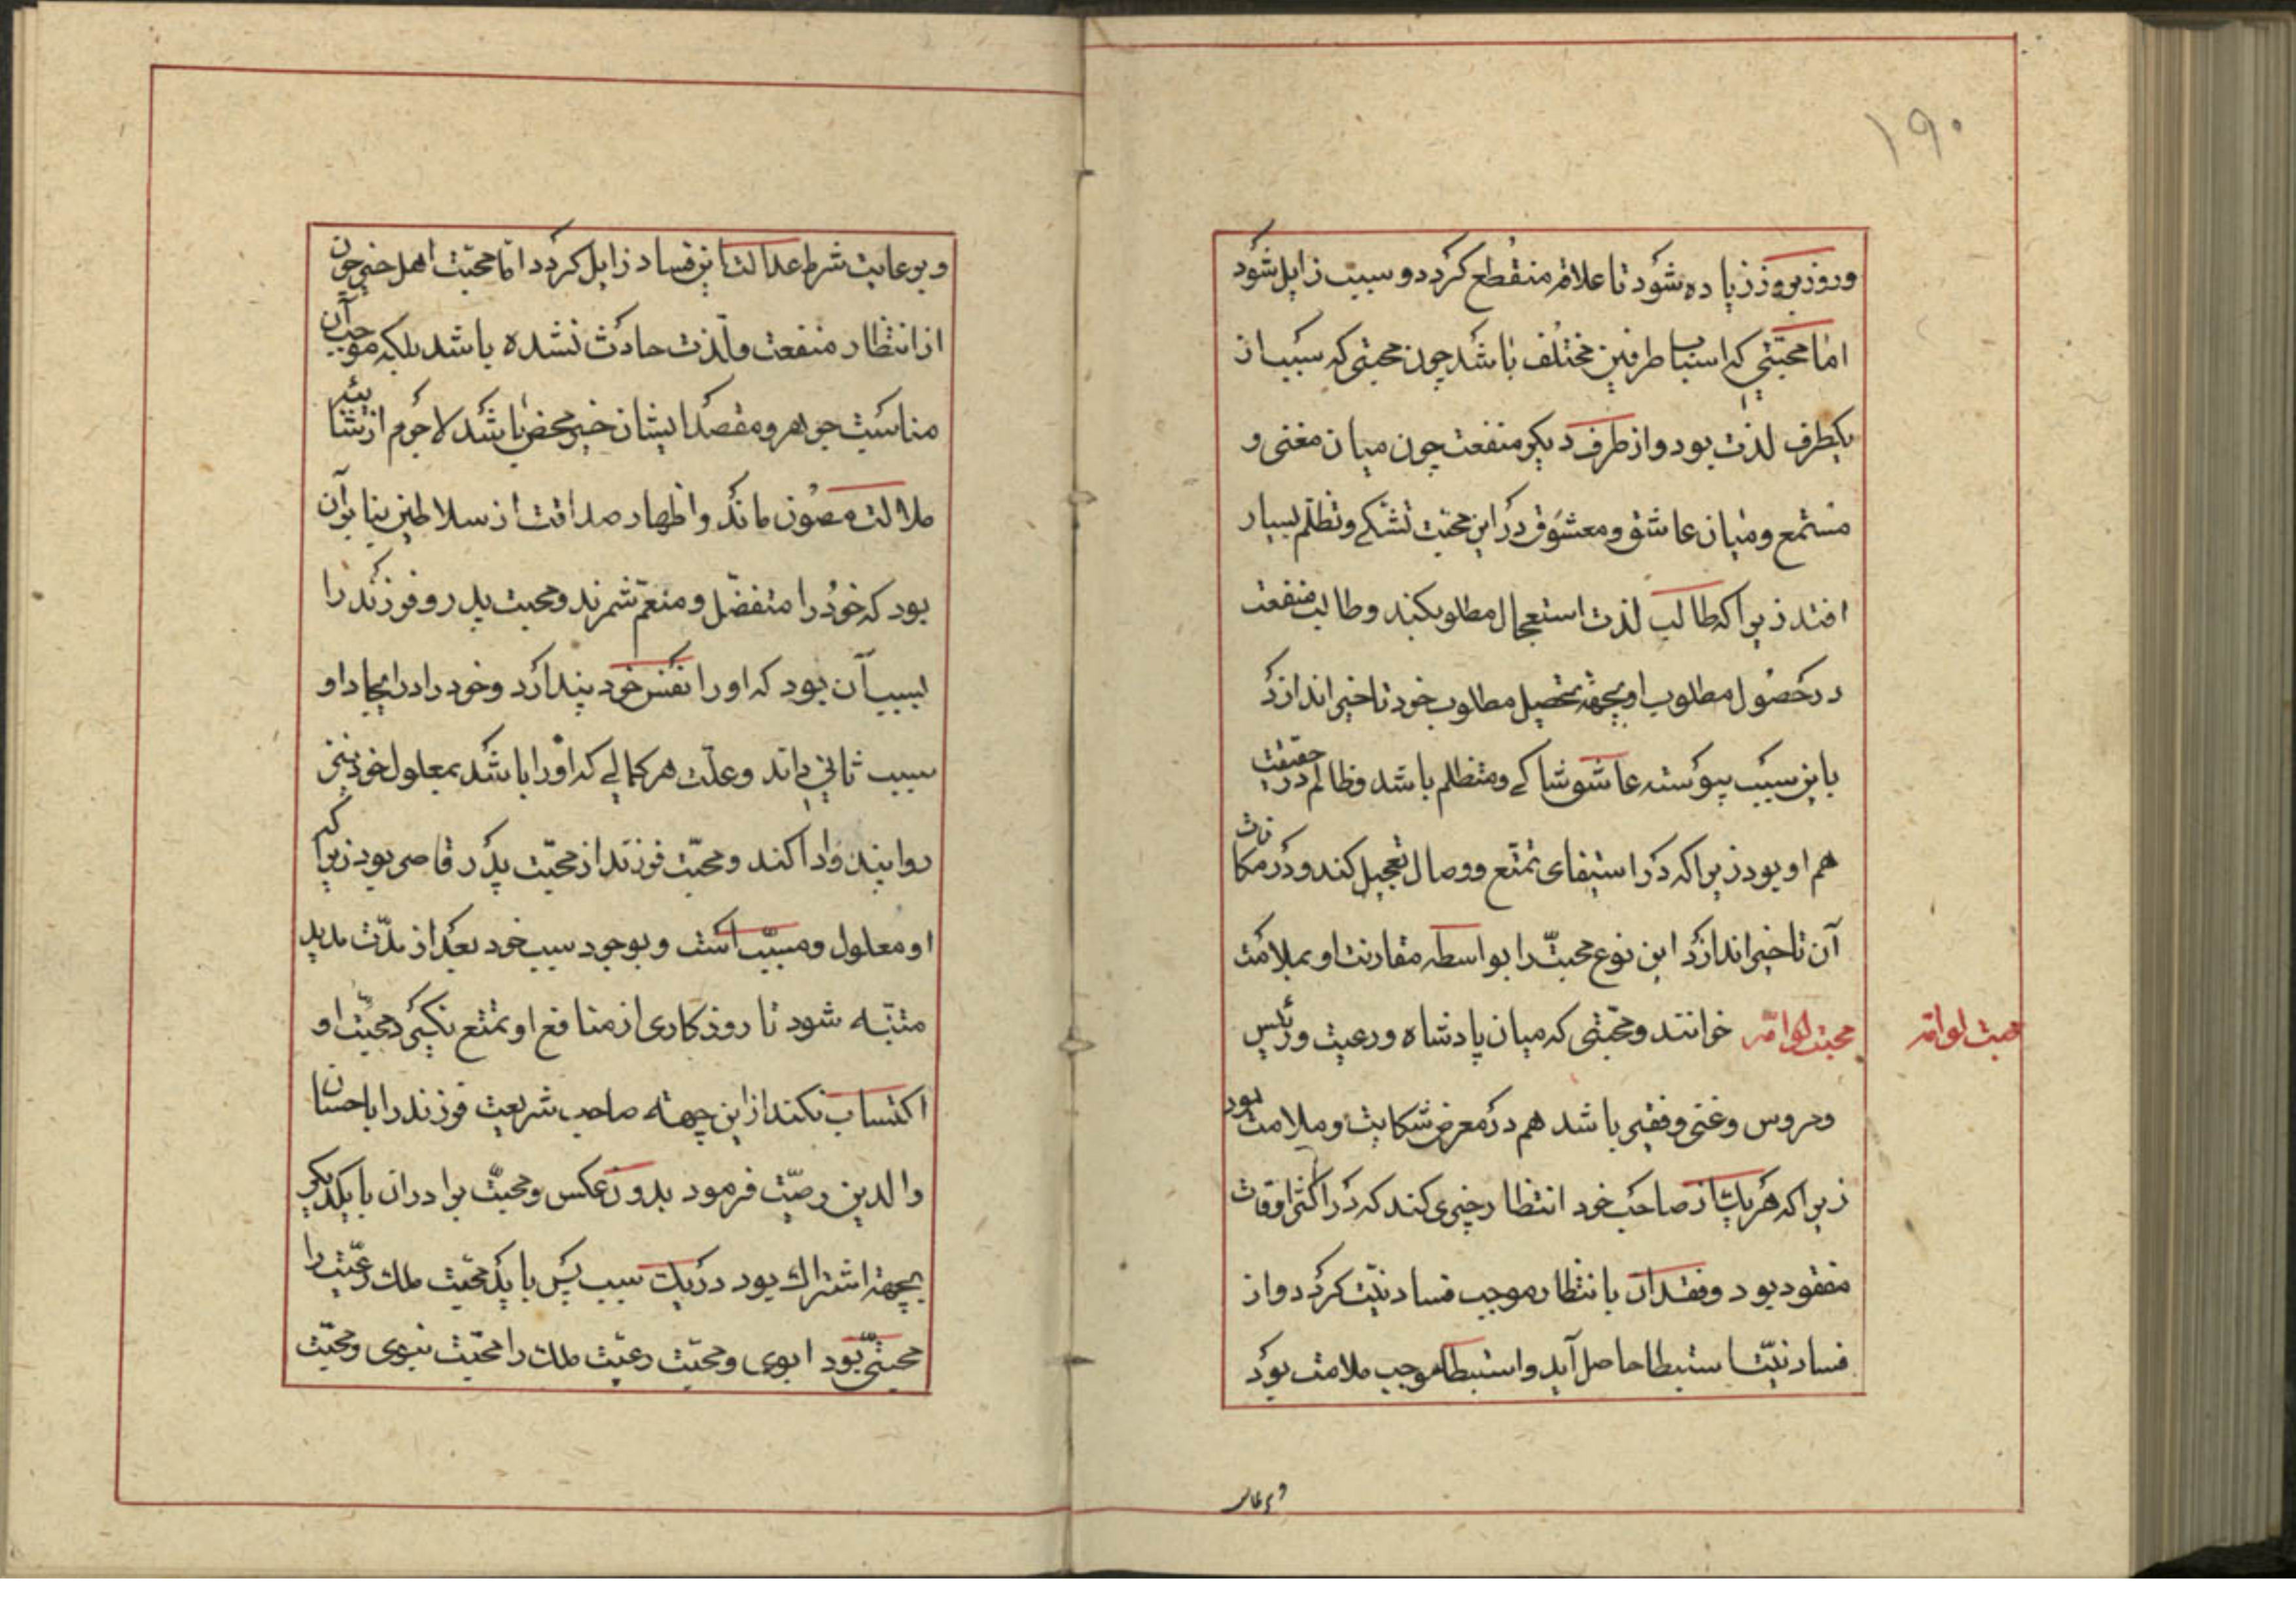 ۱۹۰
و روز بروز زیاده شود تا علاقه منقطع کردد و سبب زایل شود
اما محبّتی که اسباب طرفین مختلف باشد چون محبتی که سبب از
یکطرف لذت بود و از طرف دیکر منفعت چون میان مغنی و
مستمع و میان عاشق و معشوق در این محبّت تشکی و تظلّم بسیار
افتد زیرا که طالب لذت استعجال مطلوب کند و طالب منفعت
در حصول مطلوب او بجهة تحصیل مطلوب خود تاخیر اندازد
باین سبب پیوسته عاشق شاکی و متظلم باشد و ظالم در حقیقت
هم او بود زیرا که در استیفای تمتّع و وصال تعجیل کند و در مکافات
آن تاخیر اندازد این نوع محبّت را بواسطه مقارنت او بملامت
محبت لوّامّه خوانند و محبّتی که میان پادشاه و رعیت و رئیس
محبت لوامّه
و مروس و غنی و فقیر باشد هم در معرض شکایت و ملامت بود
زیرا که هر یک از صاحب خود انتظار چیزی کند که در اکثر اوقات
مفقود بود و فقدان با انتظار موجب فساد نیّت کردد و از
فساد نیّت استبطا حاصل آید و استبطا موجب ملامت بود
و برعایت شرط عدالت این فساد زایل کردد امّا محبّت اهل خیر چون
از انتظار منفعت و لذّت حادث نشده باشد بلکه موجب آن
مناسبت جوهر و مقصد ایشان خیر محض باشد لاجرم از شائبه
ملالت مصون ماند و اظهار صداقت از سلاطین بنا بر آن
بود که خود را متفضّل و منعم شمرند و محبت پدر و فرزند را
بسبب آن بود که او را نفس خود پندارد و خود را در ایجاد او
سبب ثانی داند و علّت هر کمالی که او را باشد بمعلول خود نیز
روا بیند و ادا کند و محبّت فرزند از محبّت پدر قاصر بود زیرا که
او معلول و مسبّب است و بوجود سبب خود بعد از مدّت مدید
متنبّه شود تا روزکاری از منافع او تمتع نکیرد محبّت او
اکتساب نکند از این جهة صاحب شریعت فرزند را باحسان
والدین وصیّت فرمود بدون عکس و محبّت برادران با یکدیکر
بجهة اشتراک بود در یک سبب پس باید محبّت ملک رعیّت را
محبتی بود ابوی و محبّت رعیّت ملک را محبّت نبوی و محبّت